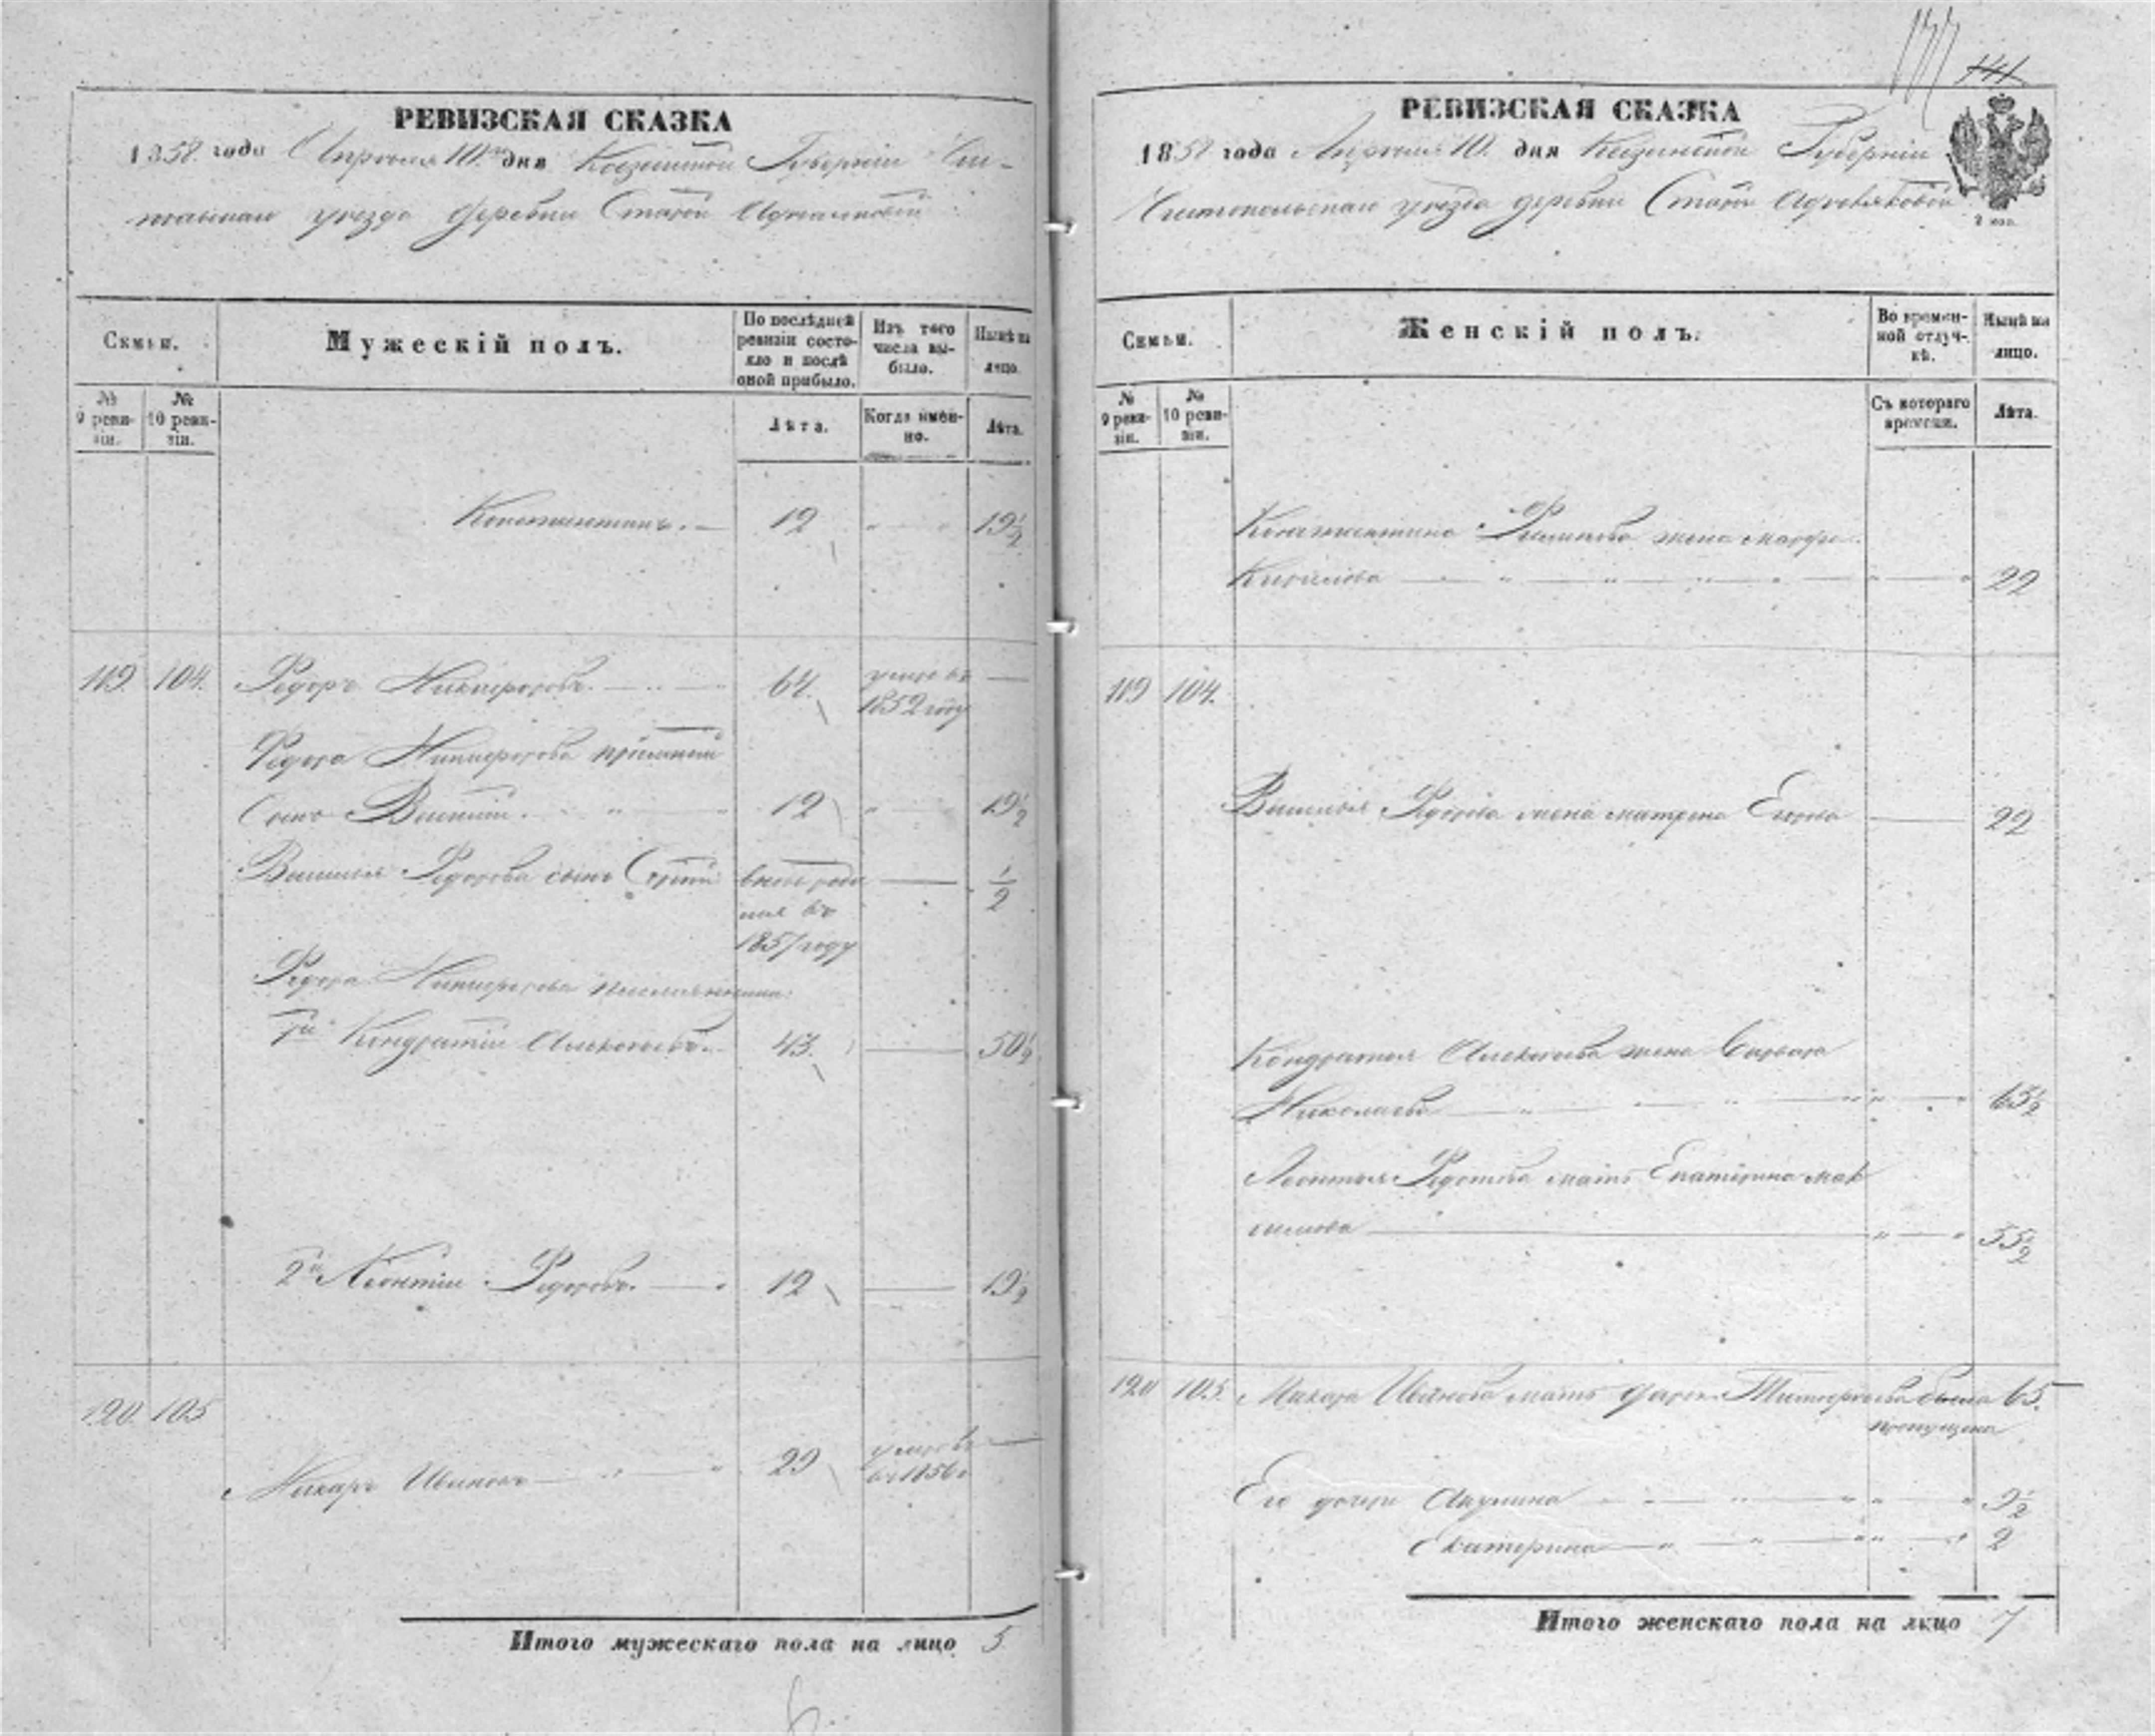 РЕВИЗСКАЯ СКАЗКА
1858 года Апреля 10 дня Казанской Губернии Чис-
уезда деревни Старой
Семьи.
Мужескій полъ.
По послѣдней ревизіи состо-
яло и послѣ
оной прибыло.
Изъ того
числа вы-
было.
Нынѣ на
лицо.
№
9 реви-
зіи.
№
10 реви-
зіи.
Лѣта.
Когда имен-
но.
Лѣта.
Константинъ. 12 19½
119. 104. Федоръ Никифоровъ. 64. умеръ въ
1852 году
Федора Никифорова пріемный
Сынъ Василій. 12 19½
Василья Федорова сынъ Сергій
½
1857 году
Федора Никифорова
1й Кондратій Алексеевъ. 43. 50½
2й Леонтій Федоровъ. 12 19½
120. 105
Макаръ Ивановъ 29 умеръ въ
1856
Итого мужескаго пола на лицо 5
141
РЕВИЗСКАЯ СКАЗКА
1858 года Апреля 10. дня Казанской Губерніи
Чистопольскаго уезда деревни Старой
2 коп.
Семьи.
Женскій полъ.
Во времен-
ной отлуч-
кѣ.
Нынѣ на
лицо.
№
9 реви-
зіи.
№
10 реви-
зіи.
Съ котораго
времени.
Лѣта.
Константина Филипова жена Марфа
Кирилова 22
119 104.
Василья Федорова жена Матрена Егорова 22
Кондратья Алексеева жена Варвара
Николаева 63½
Леонтья Федорова мать Екатерина Мак
симова 55½
120 105. Макара Иванова мать Дарья была 65.
пропущена
Его дочери Акулина 9½
Екатерина 2
Итого женскаго пола на лицо 7